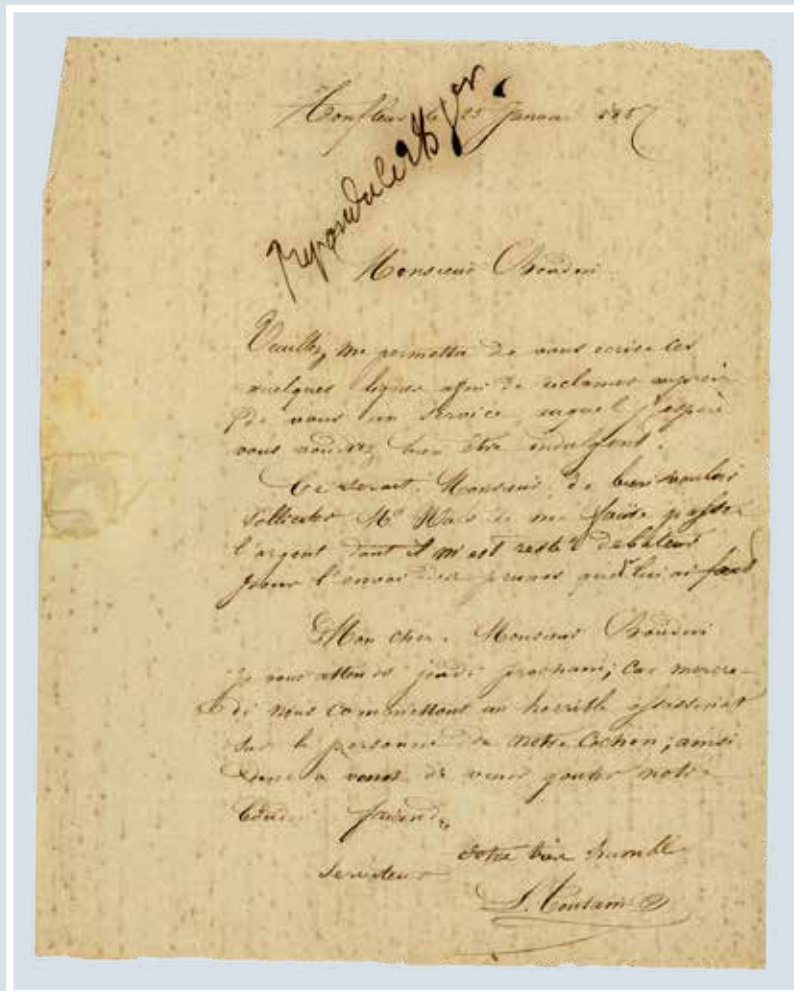 Honfleur le 25 Janvier 1857
repondu le 28 Jer
Monsieur Boudin
Veuillez me permettre de vous ecrire ces
quelques lignes afin de reclamer auprès
de vous un service auquel j'espère
vous voudrez bien être indulgent.
Ce serait, Monsieur, de bien vouloir
solliciter Mr de me faire passer
l'argent dont il m'est resté debiteur
pour l'envoi des prunes que lui ai fait
Mon cher Monsieur Boudin
je vous attends jeudi prochain; car mercre-
di nous commettons un horrible assassinat
sur la personne de notre Cochon; ainsi
donc a vous de venir gouter notre
boudin
votre bien humble
serviteur